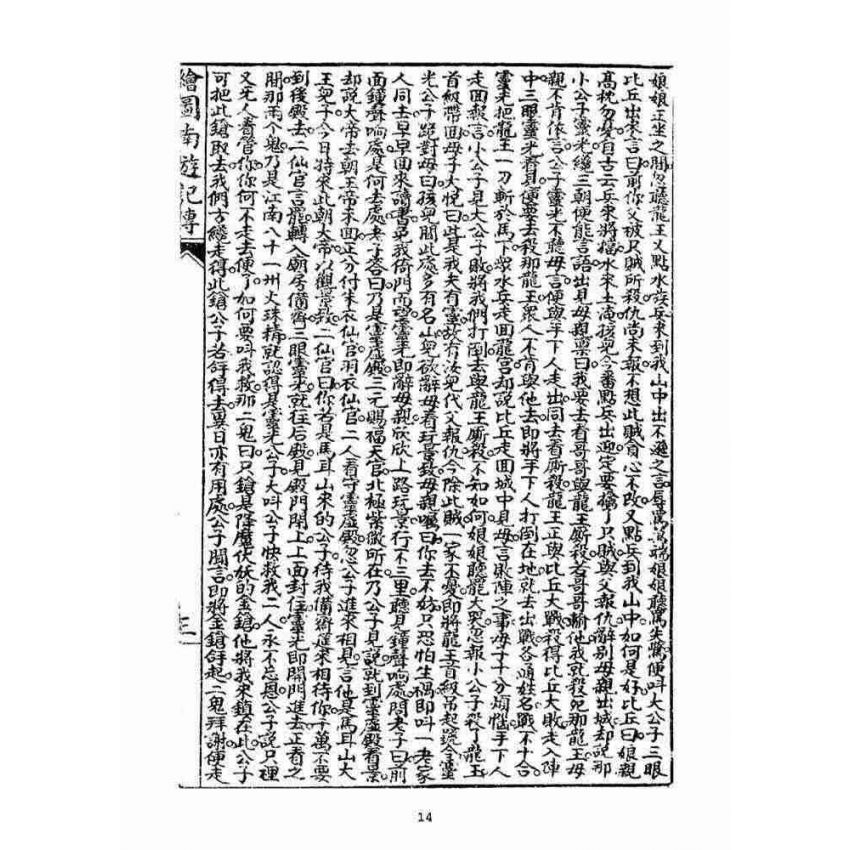 娘娘正坐之間忽聽龍王又點水族兵來到我山中出不遜之言辱罵萬端娘娘聽罵失驚便叫大公子三眼
比丘出來言曰前你父被只賊所殺仇尚未報不想此賊貪心不改又點兵到我山中如何是好比丘曰娘親
高枕勿憂自古云兵來將擋水來土淹孩兒今番點兵出迎定要擒了只賊與父報仇辭別母親出城却說那
小公子靈光纔三朝便能言語出見母親禀曰我要去看哥哥與龍王厮殺若哥哥輸他我就殺死那龍王母
親不肯依言公子靈光不聽母言便與手下人走出同去看厮殺龍王正與比丘大戰殺得比丘大敗走入陣
中三眼靈光看見便要去殺那龍王衆人不肯與他去即將手下人打倒在地就去出戰各通姓名戰不十合
靈光把龍王一刀斬於馬下衆水兵走回龍宮却說比丘走回城中見母言敗陣之事母子十分煩惱手下人
走回報言小公子見大公子敗將我們打倒去與龍王厮殺不知如何娘娘聽罷大哭忽報小公子殺了龍王
首級帶回母子大悅曰此是我夫有靈故有汝兒代父報仇今除此賊一家不憂即將龍王首級吊起號令靈
光公子跪對母曰孩兒聞此處多有名山兒欲辭母看玩景致母親囑曰你去不妨只恐怕生禍即叫一老家
人同去早早回來讀書免我倚門而望靈光即辭母親欣欣上路玩景行不三里聽見鐘聲响處問老子曰前
面鐘聲响處是何去處老子答曰乃是靈虛殿三元賜福天官北極紫微所在乃公子見說就到靈虛殿看景
却說大帝去朝玉帝未回正分付朱衣仙官羽衣仙官二人看守靈虛殿忽公子進來相見言他是馬耳山大
王兒子今日特來此朝大帝以觀景致二仙官曰你若是馬耳山來的公子待我備齋進來相待你千萬不要
到後殿去二仙官言罷轉入廟房備齋三眼靈光就往后殿見殿門閉上上面封住靈光即開門進去正看之
間那兩个鬼乃是江南八十一州火珠精就認得是靈光公子大叫公子快救我二人永不忘恩公子說只裡
又无人看管你你何不走去便了如何要叫我救那二鬼曰只鎗是降魔伏妖的金鎗他將我來鎖在此公子
可把此鎗取去我們方纔走得此鎗公子若䤩得去異日亦有用處公子聞言即將金鎗䤩起二鬼拜謝便走
繪圖南遊記傳
三
14